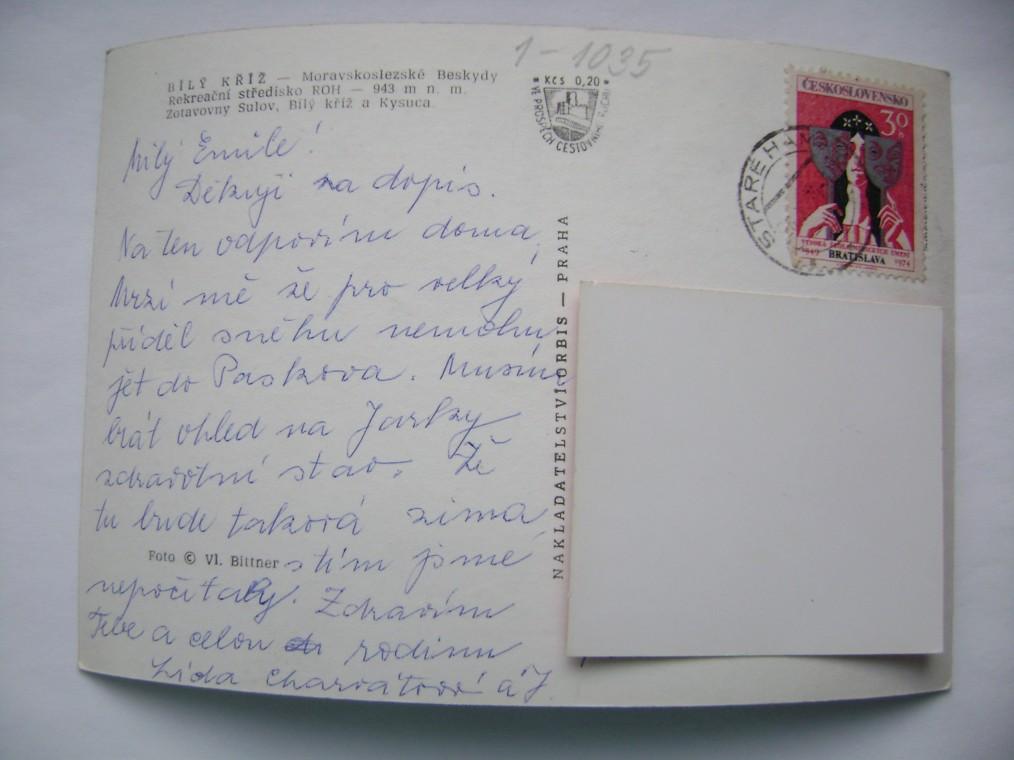 1-1035
BÍLÝ KŘÍŽ — Moravskoslezské Beskydy
Rekreační středisko ROH — 943 m n. m.
Zotavovny Sulov, Bílý kříž a Kysuca
Kčs 0,20
VE PROSPĚCH CESTOVNÍHO RUCHU
ČESKOSLOVENSKO
30 h
VYSOKÁ ŠKOLA MÚZICKÝCH UMENÍ
1949 BRATISLAVA 1974
STARÉ HAM
Milý Emile!
Děkuji za dopis.
Na ten odpovím doma,
Mrzí mě že pro velký
příděl sněhu nemohu
jet do Paskova. Musím
brát ohled na Jarky
zdravotní stav. Že
tu bude taková zima
s tím jsme
Foto © Vl. Bittner
nepočítaly. Zdravím
Tebe a celou rodinu
Lida Charvátová a J.
NAKLADATELSTVÍ ORBIS — PRAHA